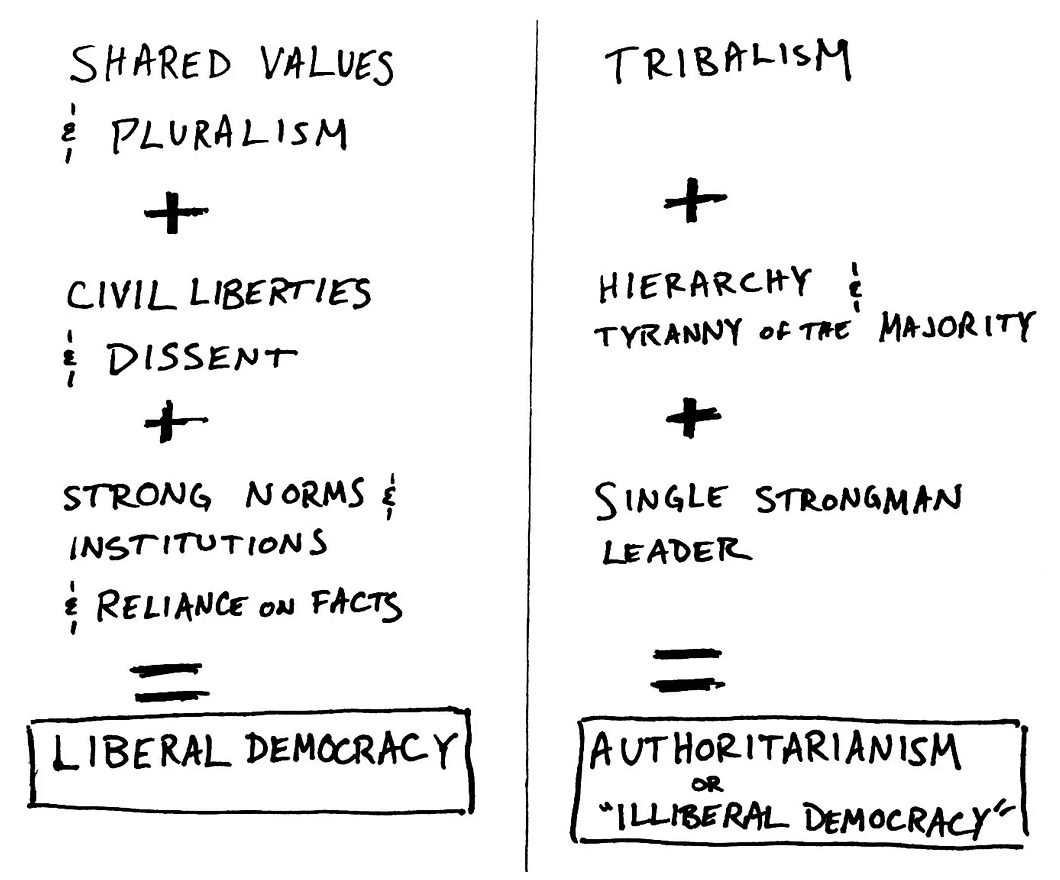 SHARED VALUES
& PLURALISM
+
CIVIL LIBERTIES
& DISSENT
+
STRONG NORMS &
INSTITUTIONS
& RELIANCE ON FACTS
=
LIBERAL DEMOCRACY
TRIBALISM
+
HIERARCHY &
TYRANNY OF THE MAJORITY
+
SINGLE STRONGMAN
LEADER
=
AUTHORITARIANISM
OR
"ILLIBERAL DEMOCRACY"